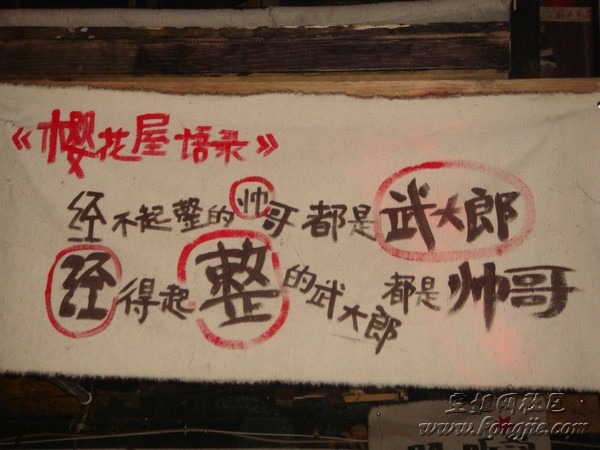 《樱花屋语录》
经不起整的帅哥都是武大郎
经得起整的武大郎都是帅哥
www.hongjie.com